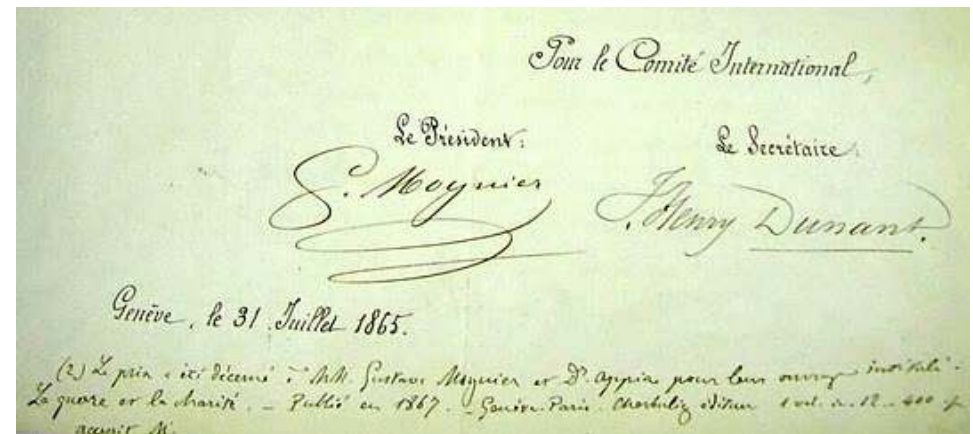 Pour le Comité International,
Le Président: Le Secrétaire
G. Moynier J. Henry Dunant.
Genève, le 31 Juillet 1865.
(2) Le prix a été décerné à MM. Gustave Moynier et Dr. Appia pour leur ouvrage intitulé -
La guerre et la charité. - Publié en 1867. - Genève. Paris. Cherbuliez éditeur 1 vol. in-12 - 400 p